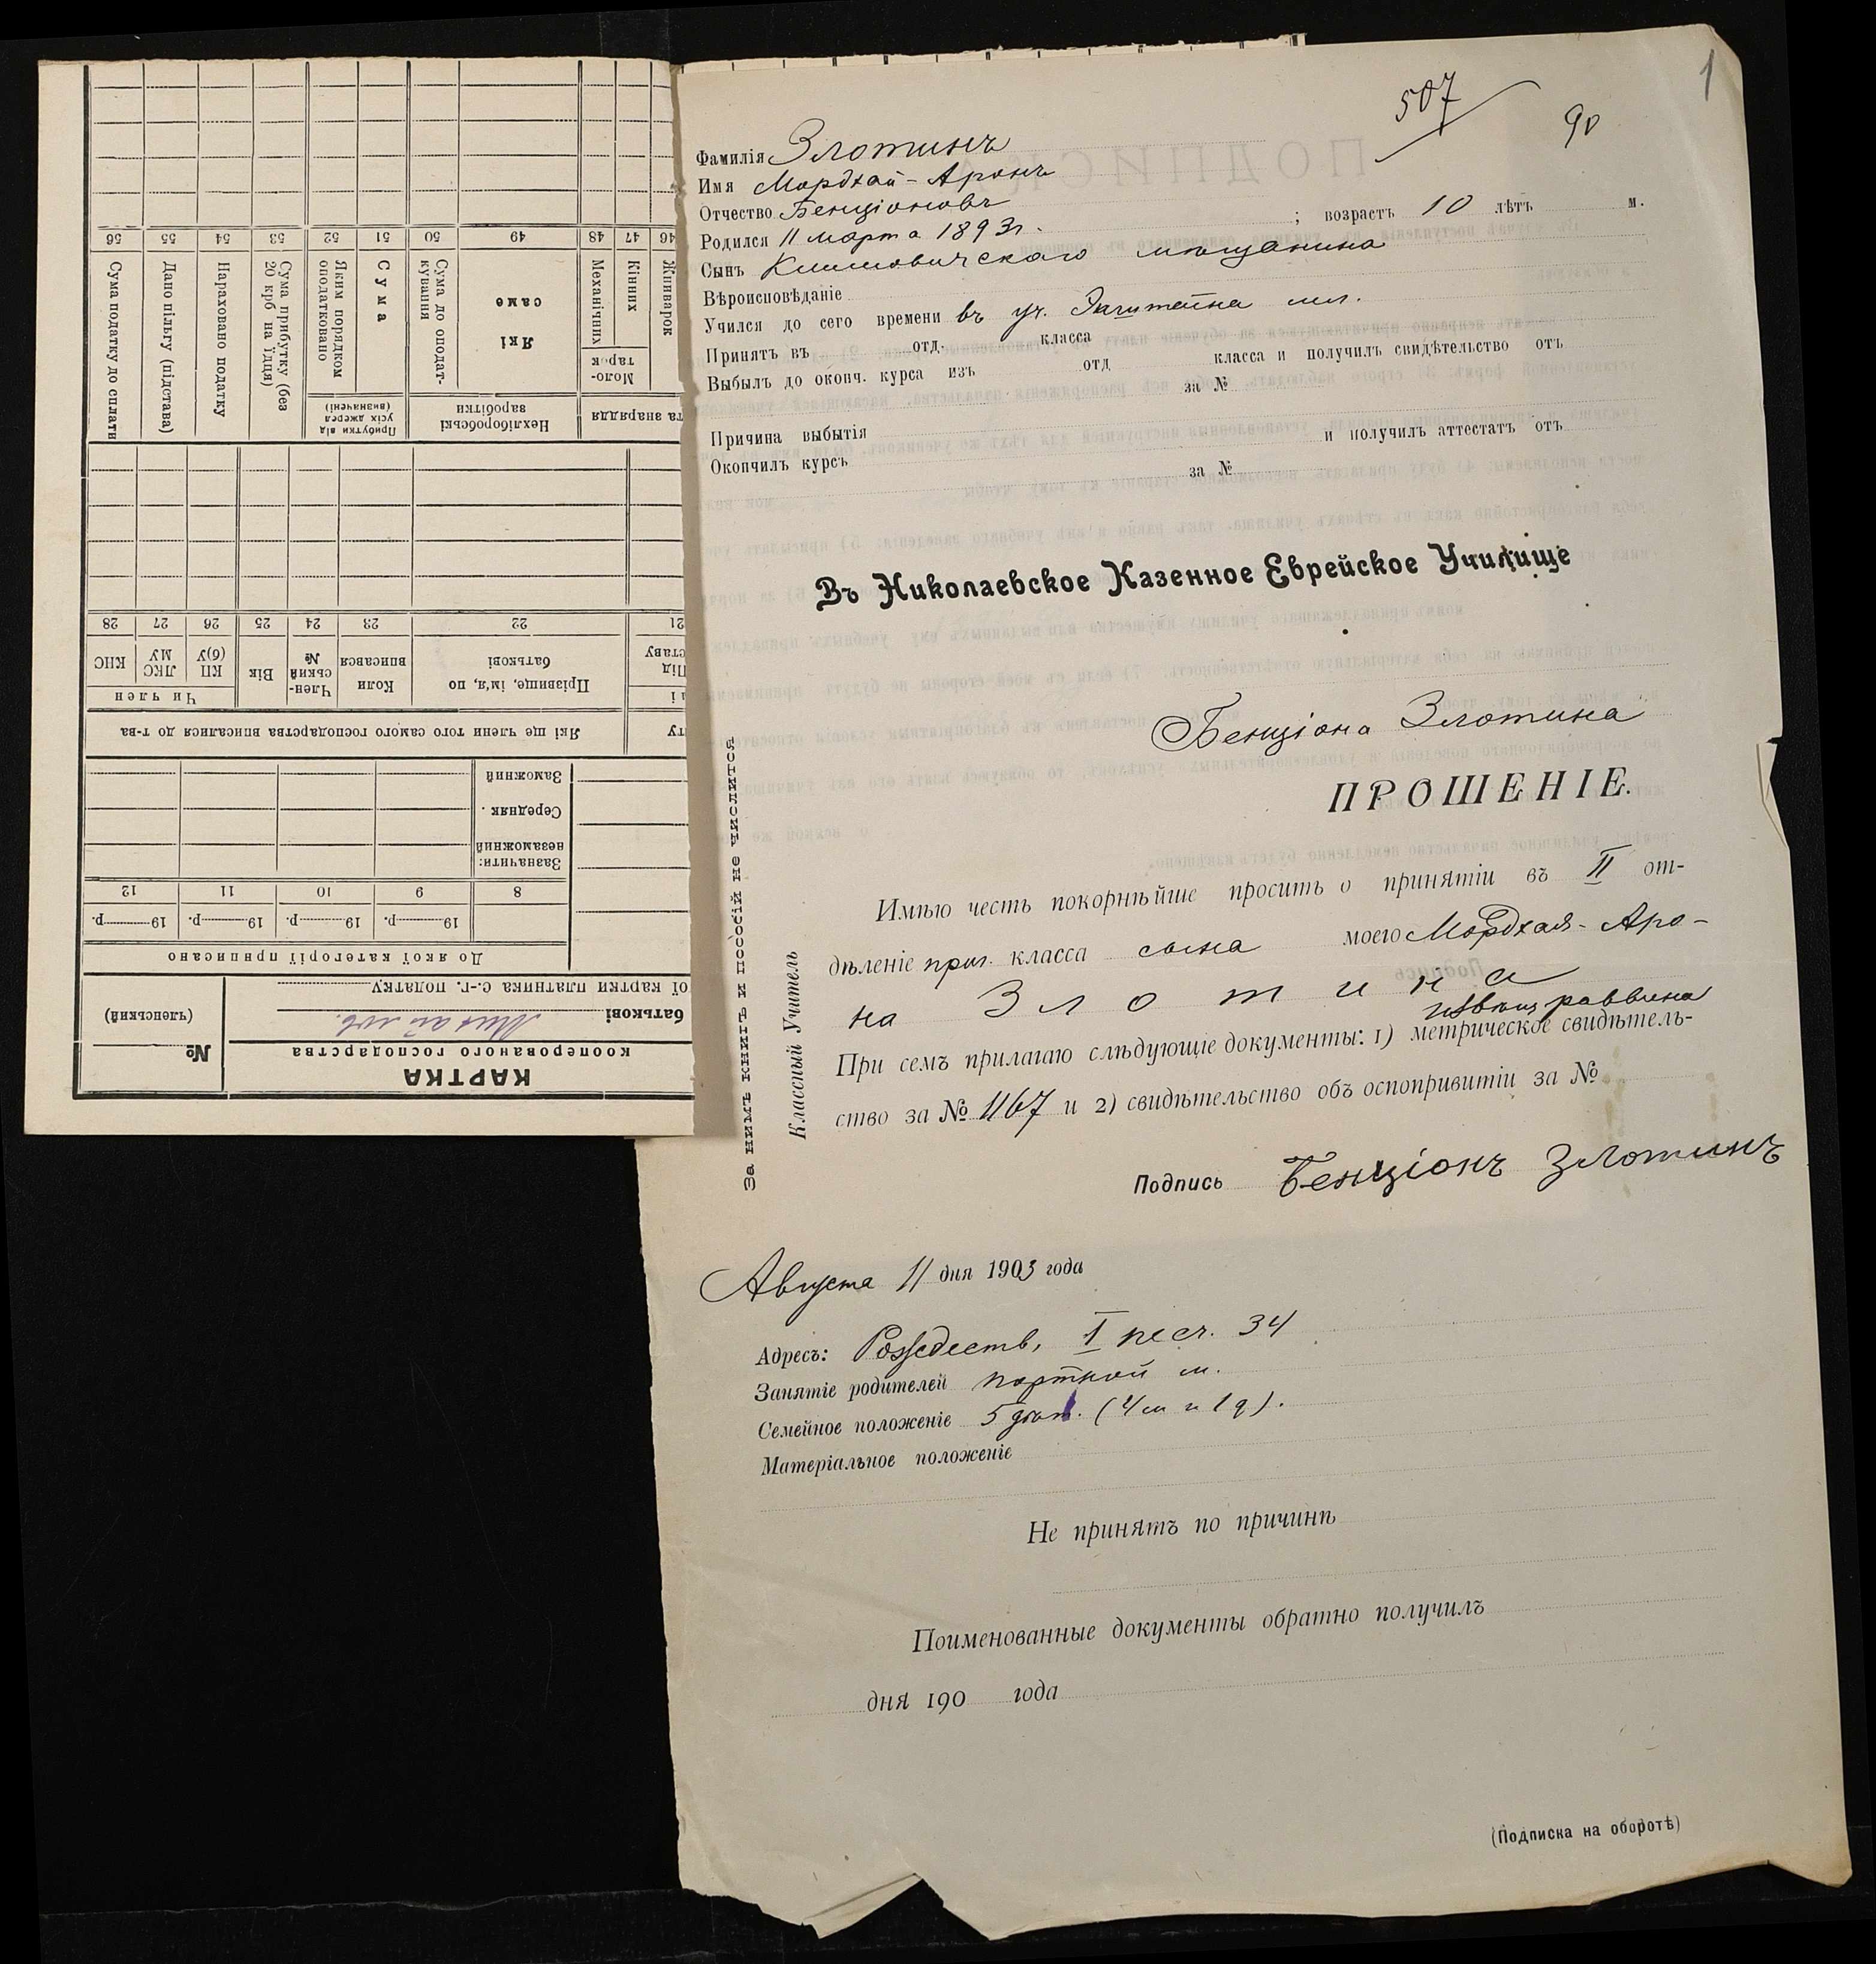 1
507
90
Фамилія Злотинъ
Имя Мордхай-Аронъ
Отчество Бенціоновъ ; возрастъ 10 лѣтъ м.
Родился 11 марта 1893 г.
Сынъ Климовичскаго мѣщанина
Вѣроисповѣданіе
Учился до сего времени въ уч.
Принятъ въ отд. класса
Выбылъ до оконч. курса изъ отд класса и получилъ свидѣтельство отъ
за №
Причина выбытія
Окончилъ курсъ и получилъ аттестатъ отъ
за №
Въ Николаевское Казенное Еврейское Училище
Бенціона Злотина
ПРОШЕНІЕ.
Имѣю честь покорнѣйше просить о принятіи въ II от-
дѣленіе приг. класса сына моего Мордхая-Аро-
на Злотина
раввина
При семъ прилагаю слѣдующіе документы: 1) метрическое свидѣтель-
ство за № 1167 и 2) свидѣтельство объ оспопривитіи за №
Подпись Бенціонъ Злотинъ
Августа 11 дня 1903 года
Адресъ: Рождеств, I песч. 34
Занятіе родителей портной м.
Семейное положеніе 5 дѣт. (4 м и 1 д).
Матеріальное положеніе
Не принятъ по причинѣ
Поименованные документы обратно получилъ
дня 190 года
(Подписка на оборотѣ)
За нимъ книгъ и пособій не числится
Классный Учитель
КАРТКА
кооперованого господарства
№
(членський)
батькові Михайлов.
ої картки платника с.-г. податку
До якої категорії приписано
19 р. 19 р. 19 р. 19 р.
8 9 10 11 12
Зазначити:
незаможний
Середняк
Заможний
Які ще члени того самого господарства вписалися до т-ва
Чи член
Прізвище, ім'я, по батькові
Коли вписався
Член-ський №
Вік
КП (б)У
ЛКС МУ
КНС
21 22 23 24 25 26 27 28
та знаряддя
Нехліборобські заробітки
Прибутки від усіх джерел (визначені)
Моло-тарок
Жниварок
Кінних
Механічних
Які саме
Сума до оподат-кування
Сума
Яким порядком оподатковано
Сума прибутку (без 20 крб на їдця)
Нараховано податку
Дано пільгу (підстава)
Сума податку до сплати
46 47 48 49 50 51 52 53 54 55 56